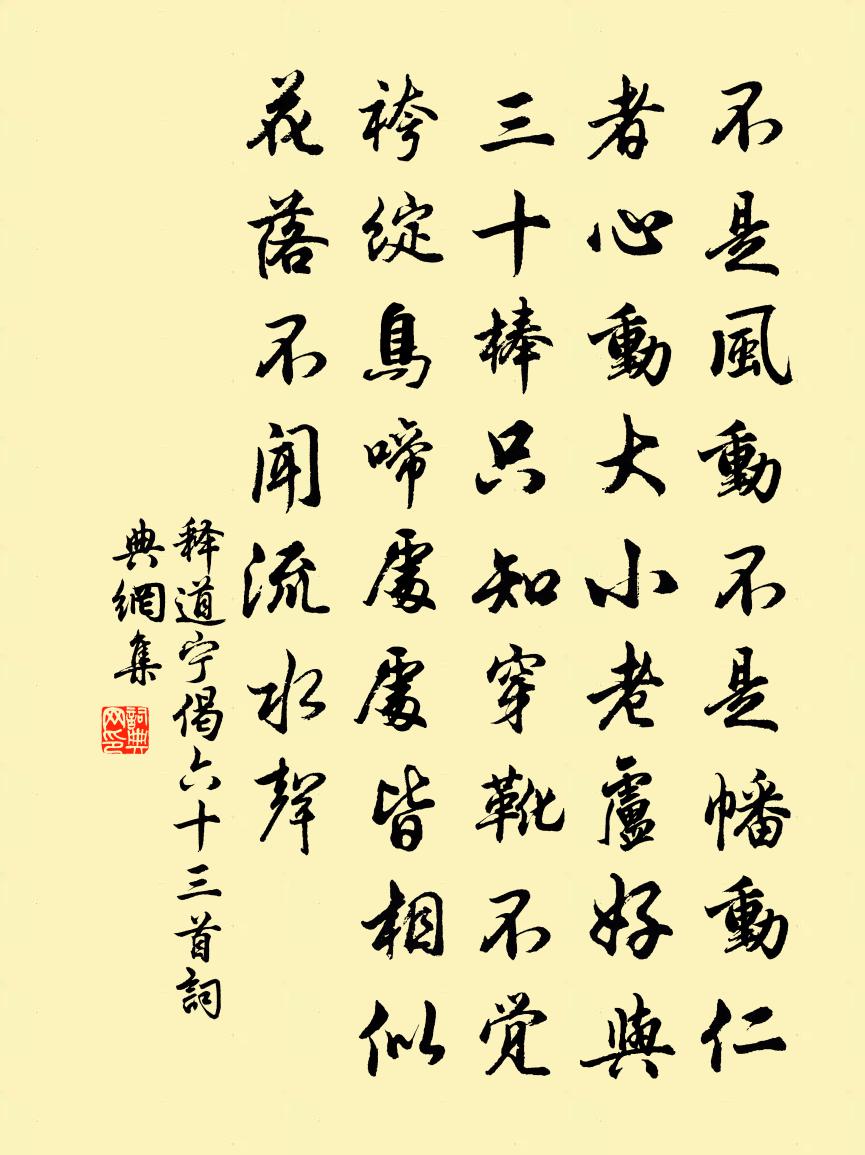 不是風動不是幡動仁
者心動大小老盧好與
三十棒只知穿靴不觉
袴綻鳥啼處處皆相似
花落不闻流水聲
释道宁偈六十三首詞
典網集
詞典网印